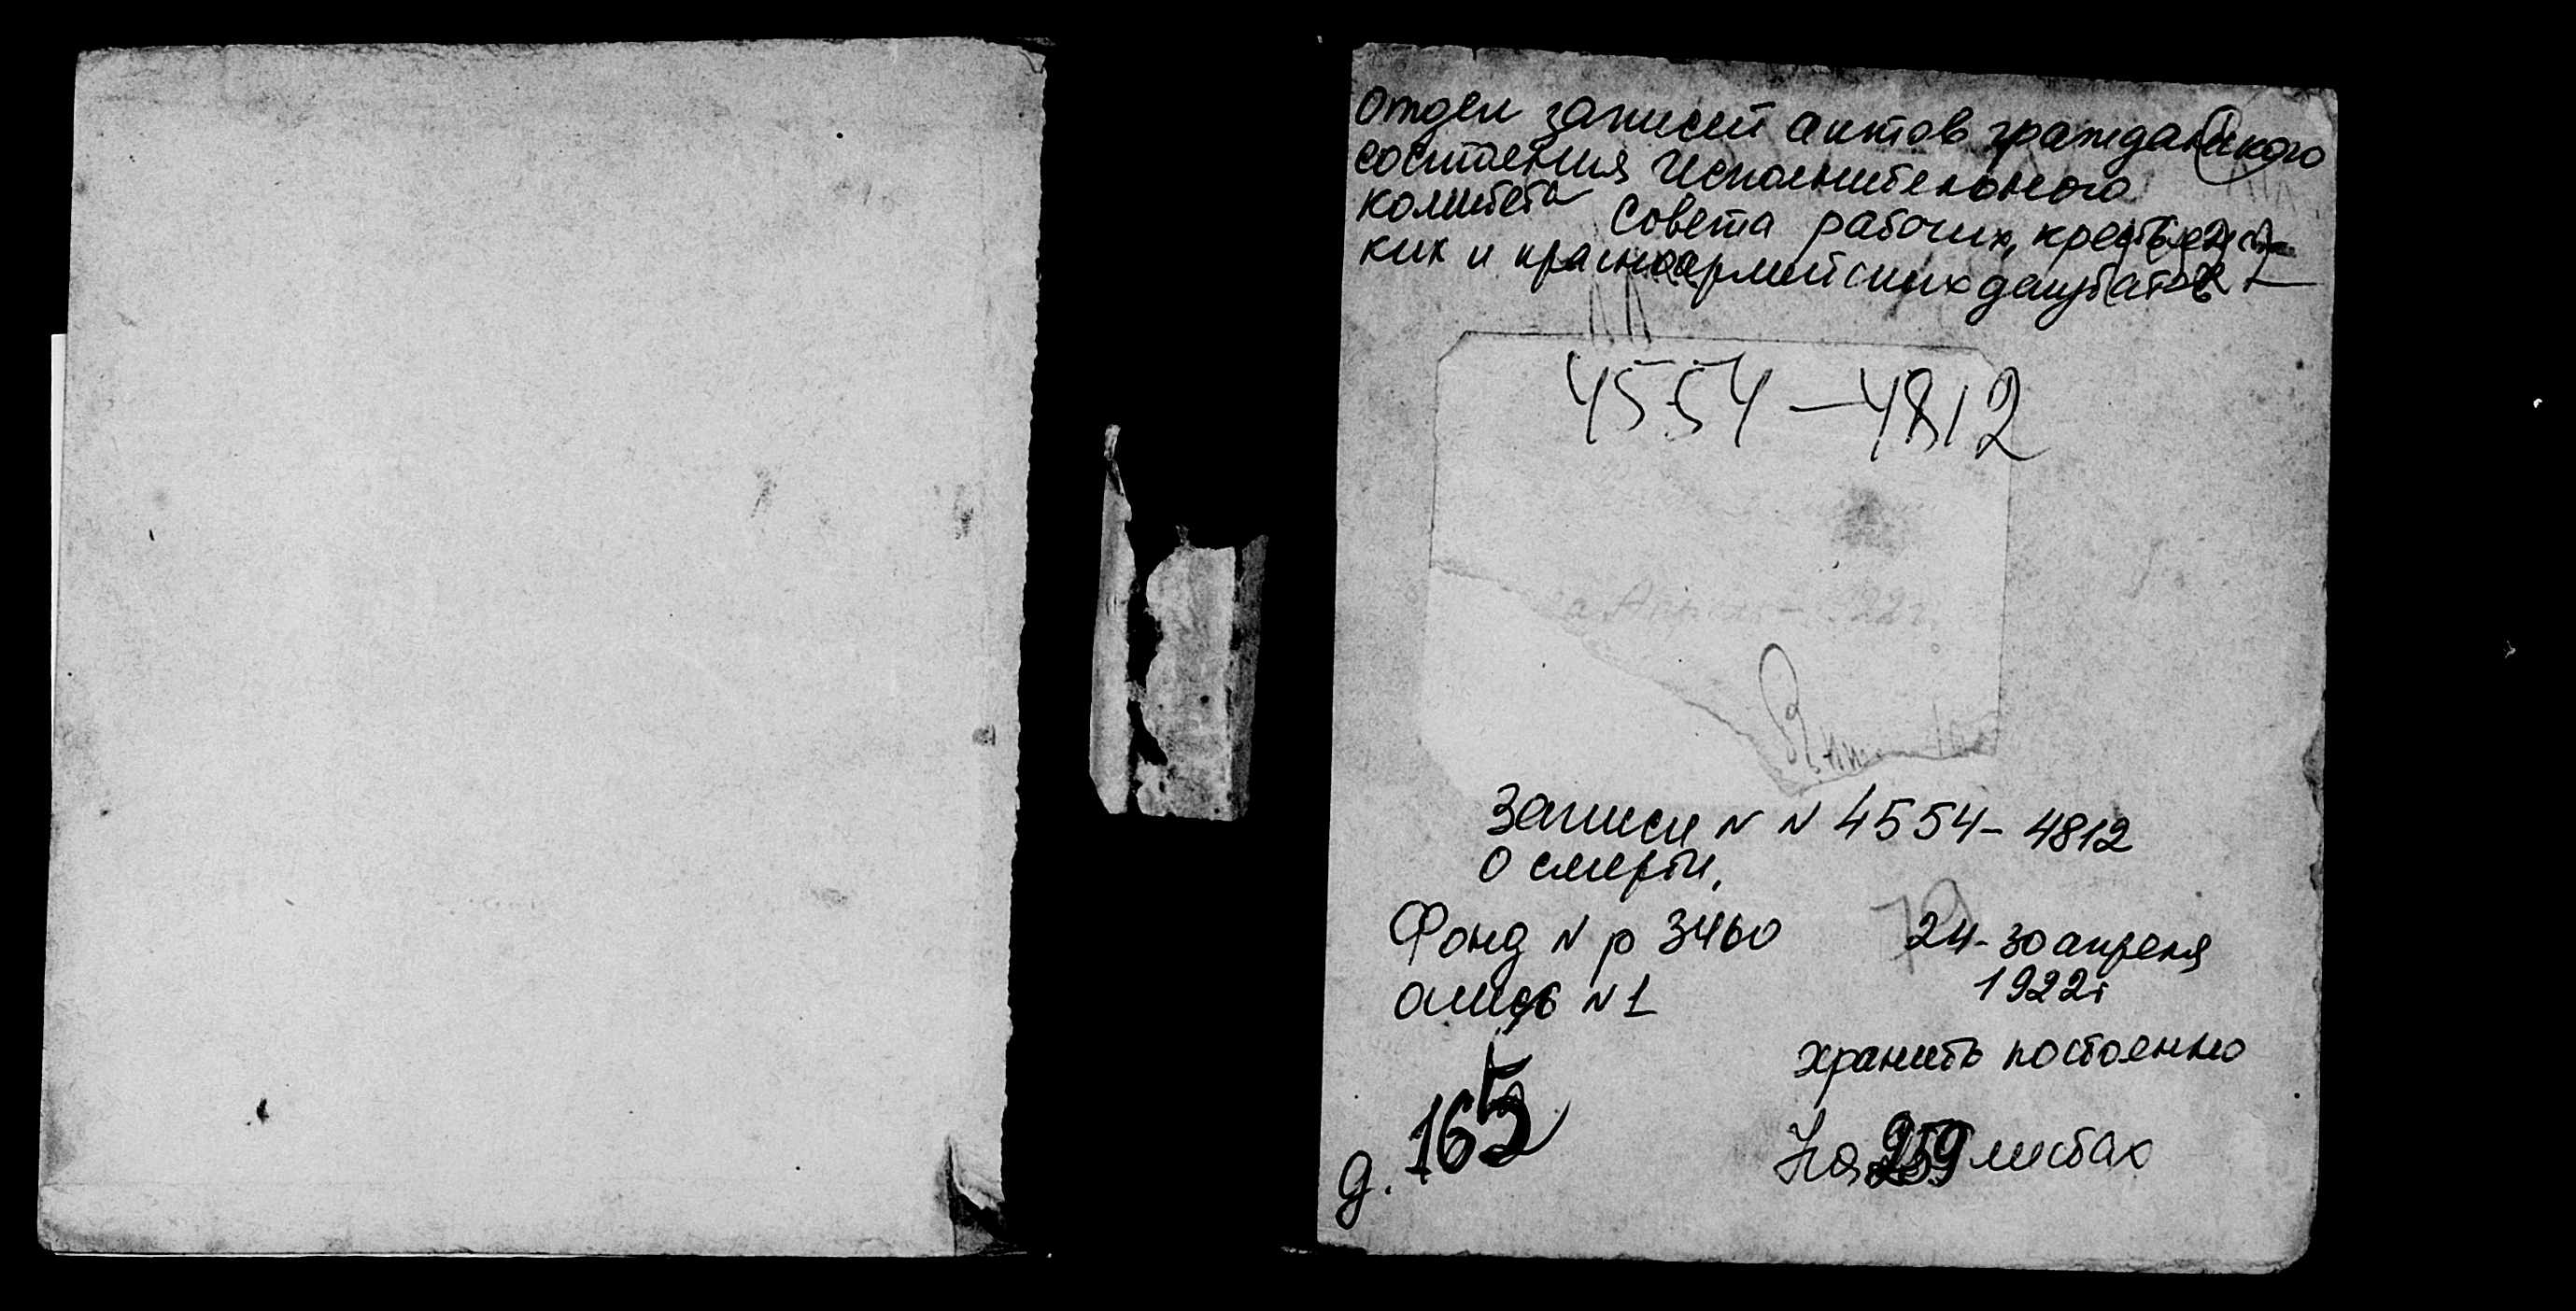 Отдел записей актов гражданского
состояния Исполнительного
комитета Совета рабочих, крестьянс-
ких и красноармейских депутатов
4554 – 4812
Апрель – 1922 г.
Записи N N 4554 – 4812
о смерти.
Фонд N р 3460
24 – 30 апреля
1922 г
опись N 1
хранить постоянно
д. 165
На 259 листах